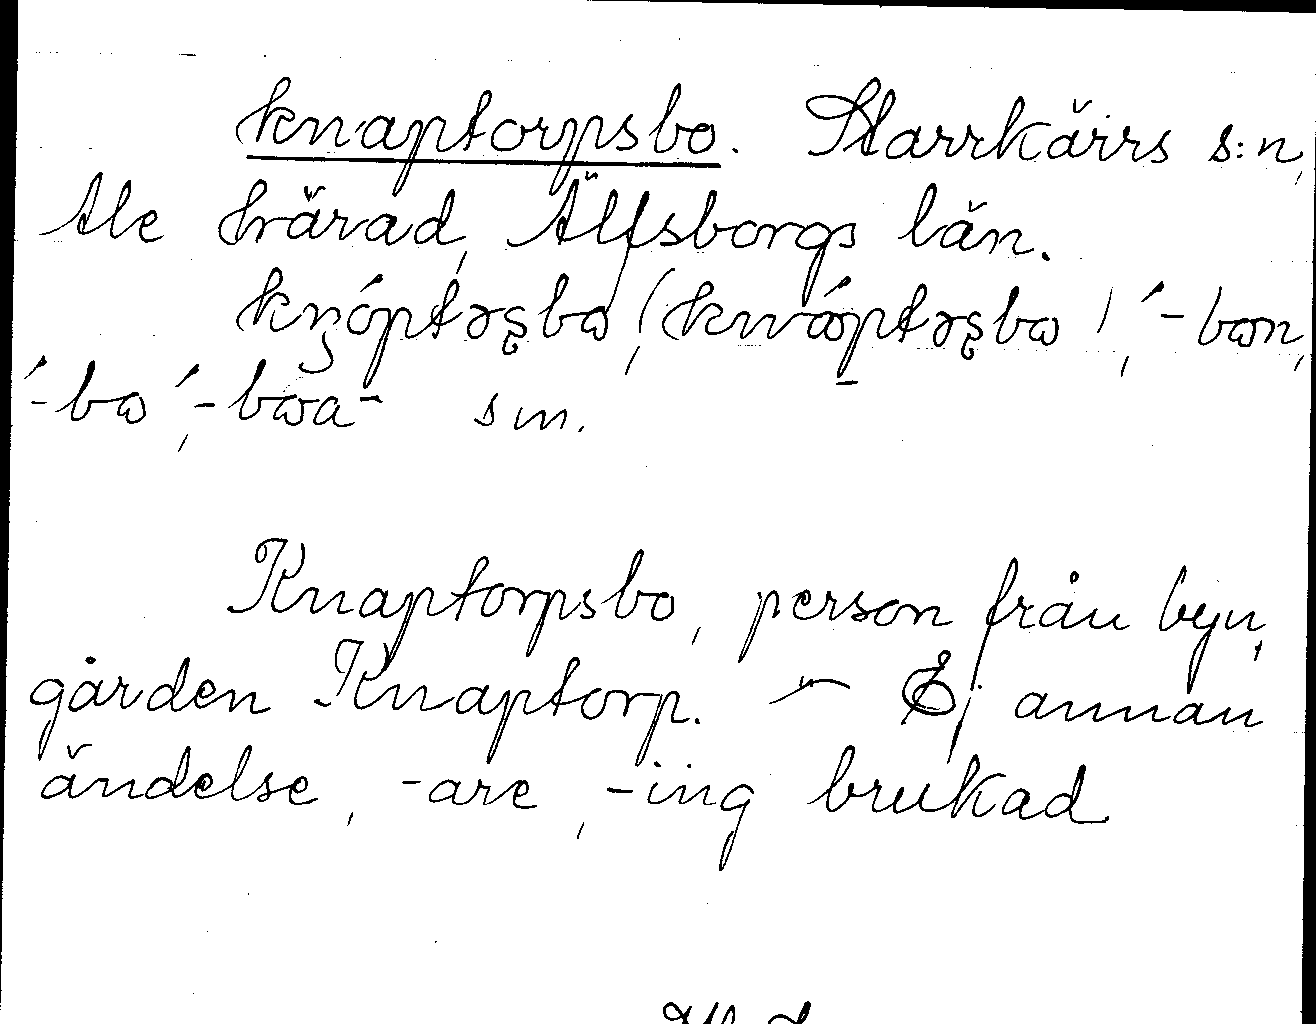 knaptorpsbo. Starrkärrs s:n,
Ale härad, Älfsborgs län.
kn̥óptəsbɷ, (knɷ́ptəsbɷ), ´-bɷn,
´-bɷ, ´-bɷa- sm.
Knaptorpsbo, person från byn,
gården Knaptorp. — Ej annan
ändelse, -are, -ing brukad